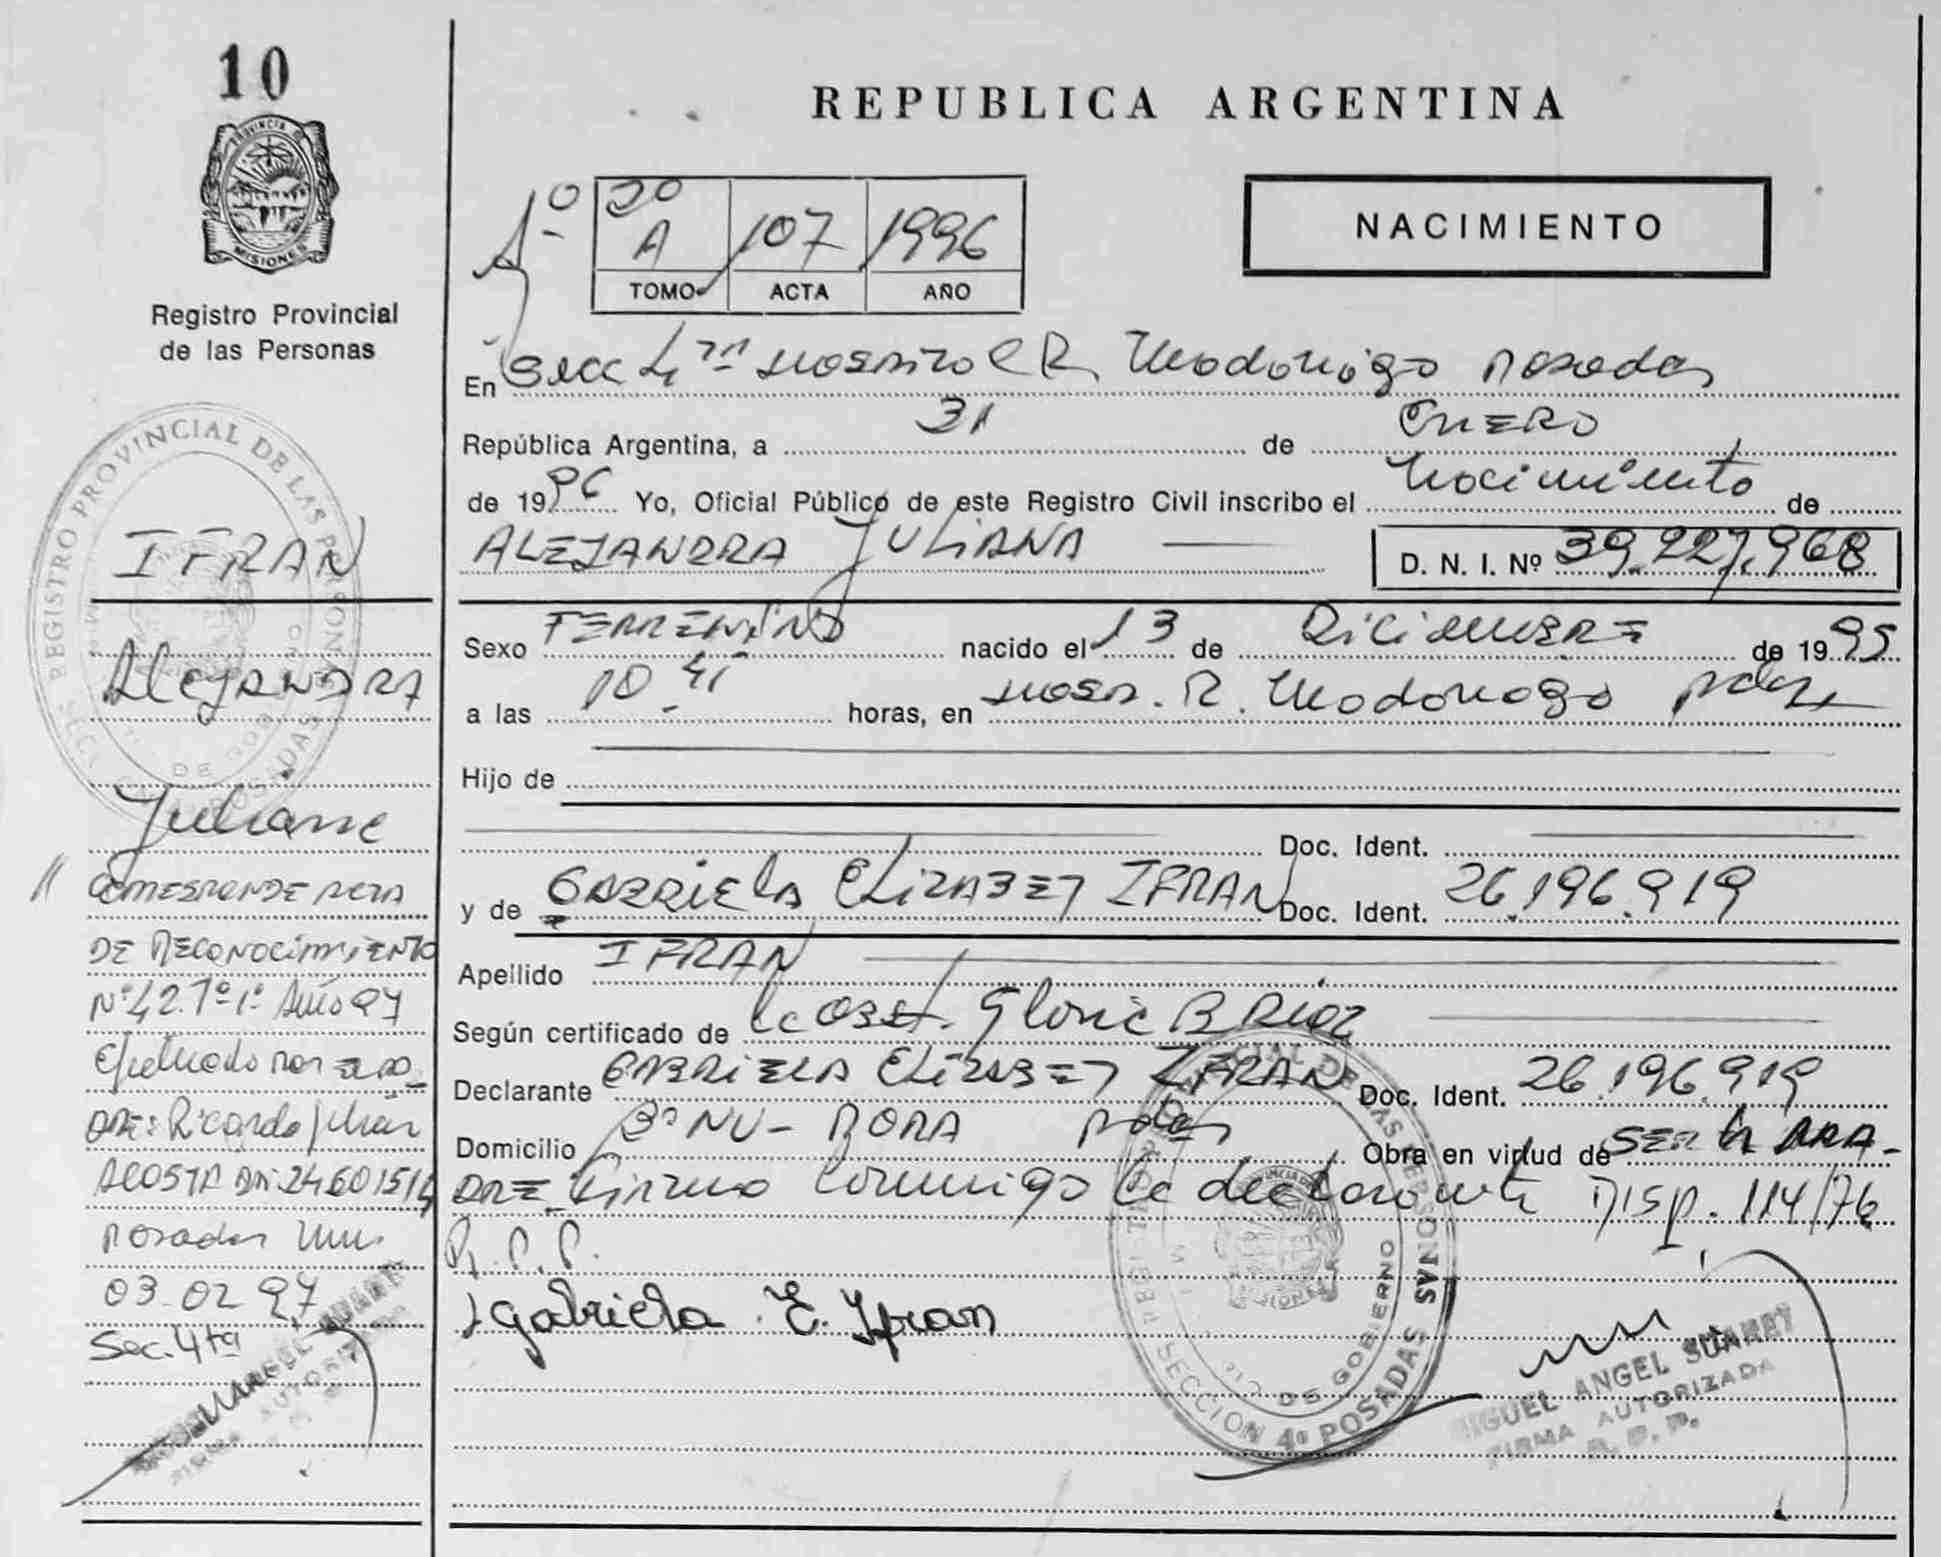 10
PROVINCIA D
MISIONES
Registro Provincial
de las Personas
REGISTRO PROVINCIAL DE LAS PERSONAS
IFRAN
ALEJANDRA
Juliana
// CORRESPONDE ACTA
DE RECONOCIMIENTO
Nº 42. Tº 1º Año 97
Efectuado por el PA-
DRE: Ricardo Julián
ACOSTA DNI 24601514
Posadas Mnes
03-02 97
Sec. 4ta
REPUBLICA ARGENTINA
Aº 20
A 107 1996
TOMO ACTA AÑO
NACIMIENTO
En Secc 4ta Hospital R. Madariaga Posadas
República Argentina, a 31 de ENERO
de 1996 Yo, Oficial Público de este Registro Civil inscribo el Nacimiento de
ALEJANDRA JULIANA D. N. I. Nº 39.227.968
Sexo FEMENINO nacido el 13 de DICIEMBRE de 1995
a las 10-45 horas, en Hosp. R. Madariaga Pdas
Hijo de
Doc. Ident.
y de GABRIELA ELIZABET IFRAN Doc. Ident. 26.196.919
Apellido IFRAN
Según certificado de la Obst. Gloria B
Declarante GABRIELA ELIZABET IFRAN Doc. Ident. 26.196.919
Domicilio Bº NU- PORA Pdas Obra en virtud de SER LA MA-
DRE Firma Conmigo la declarante DISP. 114/76
R. P. P.
Gabriela E. Ifran
SECCION 4ª POSADAS
DE GOBIERNO
MIGUEL ANGEL SUAREZ
FIRMA AUTORIZADA
R. P. P.